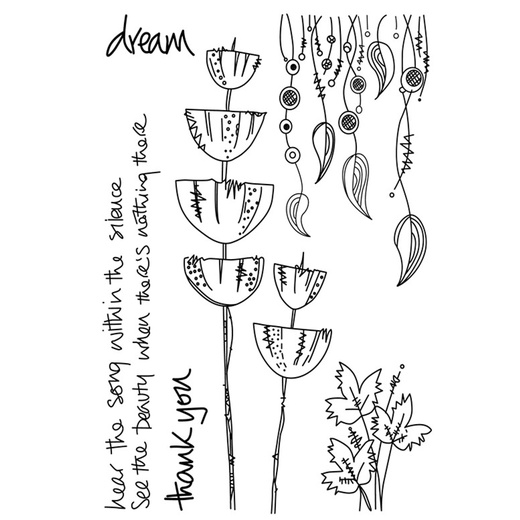 dream
hear the song within the silence
See the beauty when there's nothing there
thank you